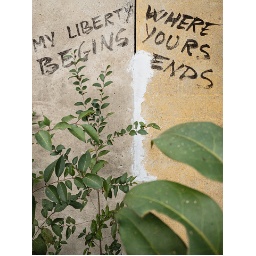 MY LIBERTY
BEGINS
WHERE
YOURS
ENDS